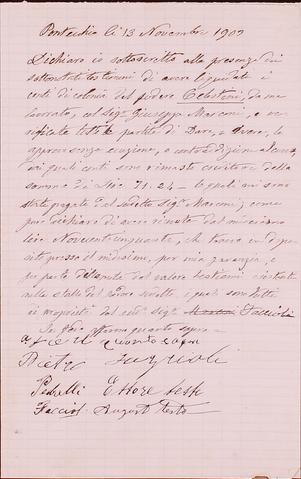 Pontecchio li 13 Novembre 1907
Dichiaro io sottoscritto alla presenza dei
sottonotati testimoni di avere liquidati i
conti di colonia del podere Celestini, da me
lavorato, col sigr Giuseppe Marconi, e ve-
rificate tutte le partite di Dare, e Avere, le
approvo senza eccezione, o contradizione alcuna,
nei quali conti sono rimasto creditore della
somma di Lire 71.24 - le quali mi sono
state pagate dal suddetto sigr Marconi; come
pure dichiaro di avere ritirato dal medesimo
lire Novecentocinquanta, che tenevo in depo-
sito presso il medesimo, per mia garanzia, e
per parte del valore bestiami esistenti
nella stalla del podere suddetto, i quali sono
di proprietà del sigr Faccioli
In fede affermo quanto sopra
Pietro
Pedrelli Ettore teste
Faccioli Augusto teste